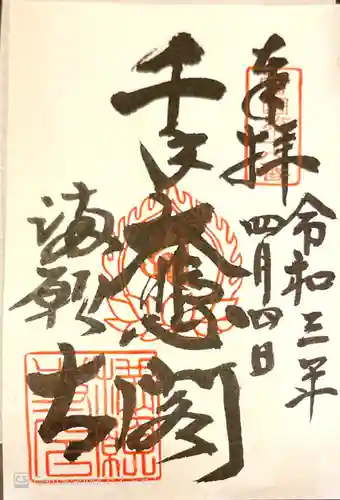 奉拝
令和三年
四月四日
千手大悲閣
満願寺